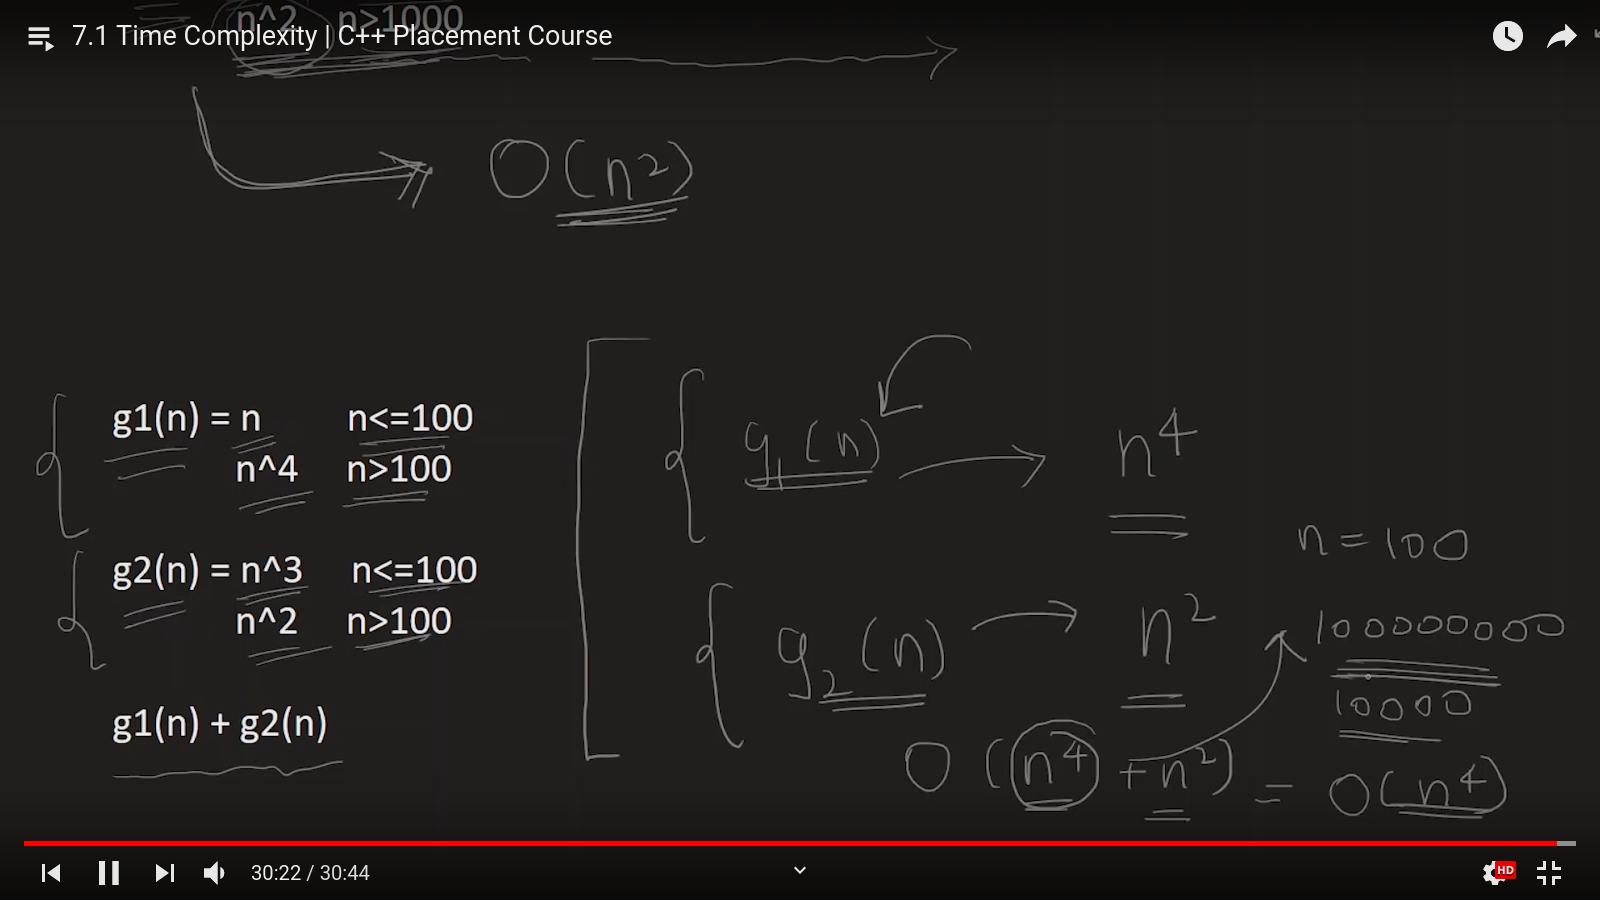 n^2 n>1000
7.1 Time Complexity | C++ Placement Course
O(n²)
g1(n) = n n<=100
n^4 n>100
g2(n) = n^3 n<=100
n^2 n>100
g1(n) + g2(n)
g₁(n) → n⁴
g₂(n) → n²
n = 100
100000000
10000
O(n⁴ + n²) = O(n⁴)
30:22 / 30:44
HD